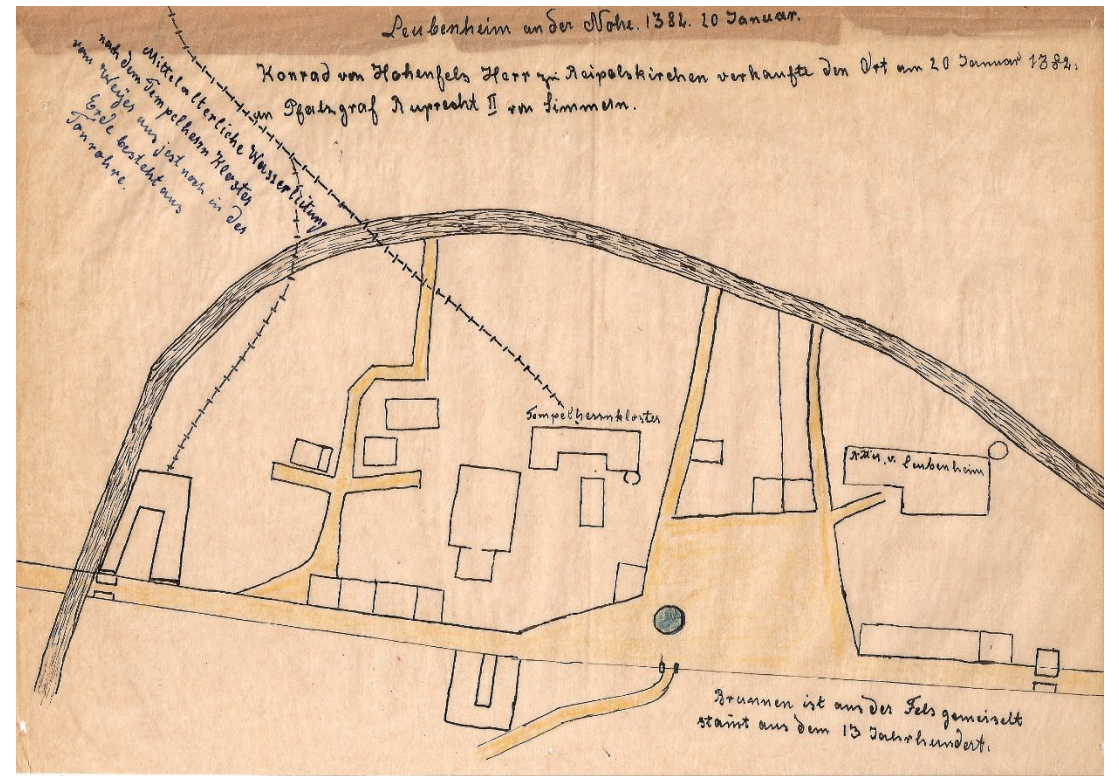 Leubenheim an der Nohe. 1382. 20 Januar.
Konrad von Hohenfels Herr zu Reipolskirchen verkaufte den Ort am 20 Januar 1382.
an Pfalzgraf Ruprecht II von Simmern.
Mittelalterliche Wasserleitung
nach dem Tempelherrn Kloster
vom Weijer aus jest noch in der
Erde besteht aus
Tonrohre.
Tempelherrnkloster
v. Leubenheim
Brunnen ist aus der Fels gemeiselt
stamt aus dem 13 Jahrhundert.